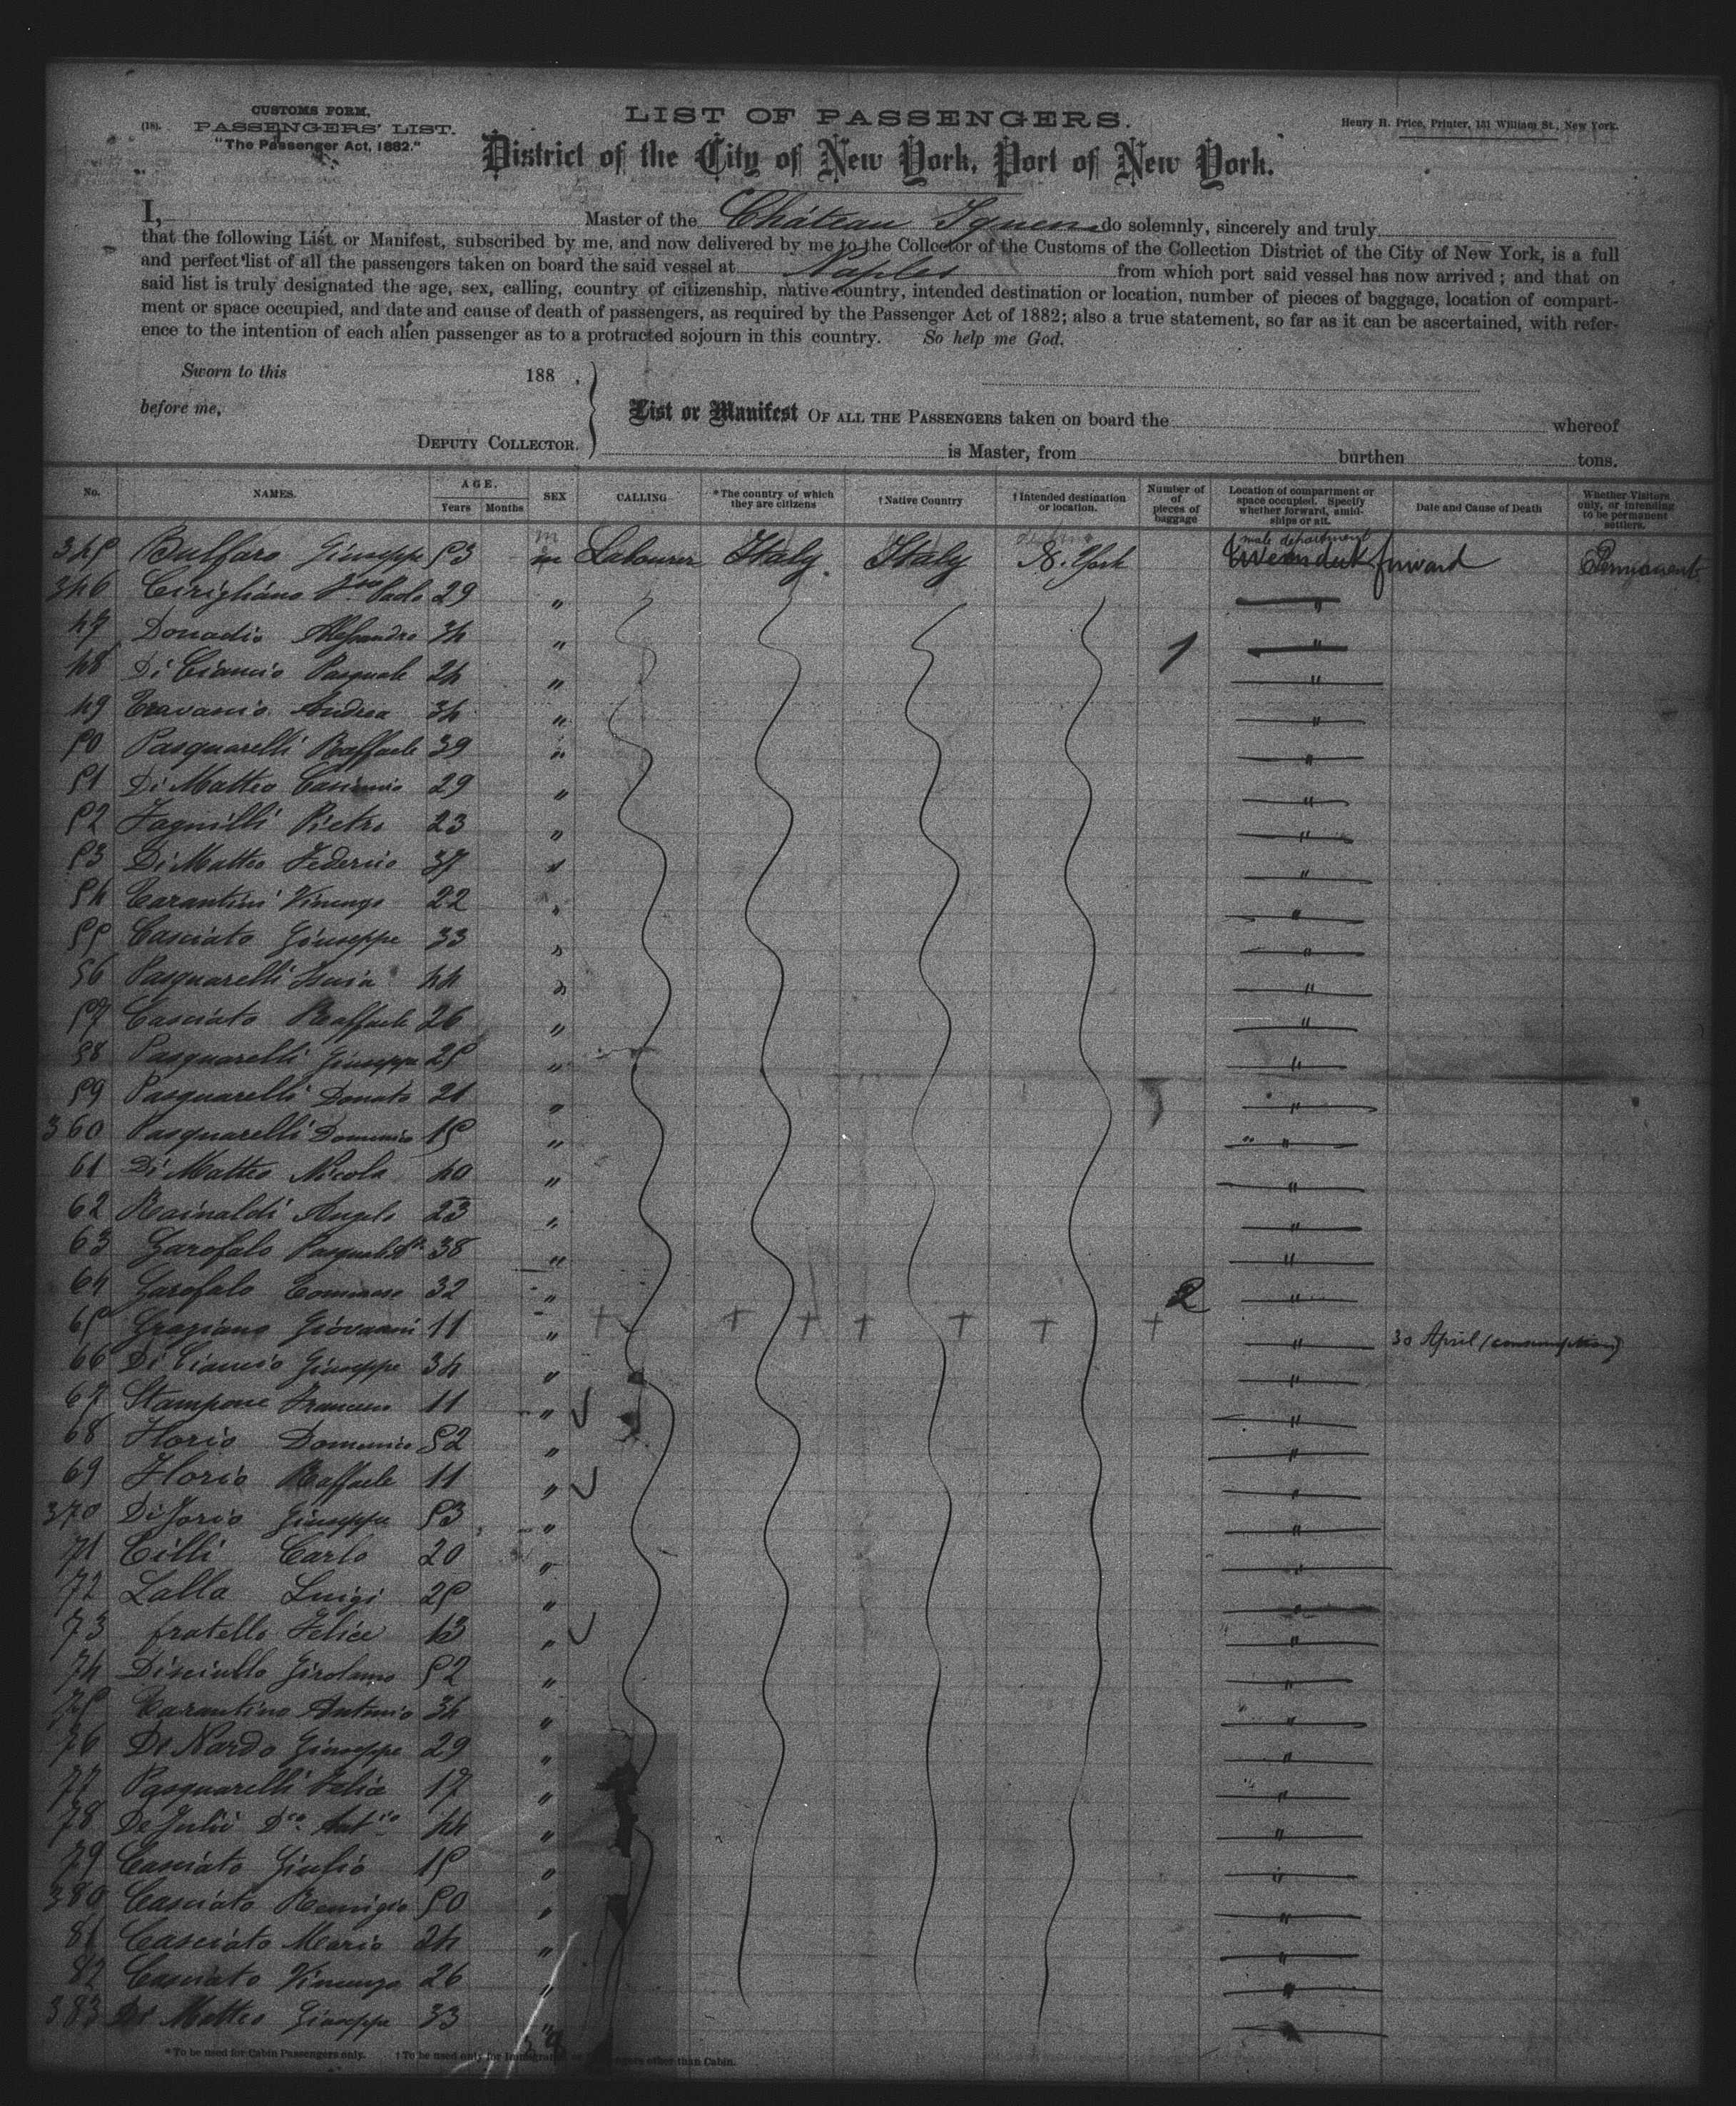 CUSTOMS FORM,
(18). PASSENGERS' LIST.
"The Passenger Act, 1882."
LIST OF PASSENGERS.
District of the City of New York, Port of New York.
Henry H. Price, Printer, 131 William St., New York.
I, Master of the Château Yquem do solemnly, sincerely and truly
that the following List or Manifest, subscribed by me, and now delivered by me to the Collector of the Customs of the Collection District of the City of New York, is a full
and perfect list of all the passengers taken on board the said vessel at Naples from which port said vessel has now arrived; and that on
said list is truly designated the age, sex, calling, country of citizenship, native country, intended destination or location, number of pieces of baggage, location of compart-
ment or space occupied, and date and cause of death of passengers, as required by the Passenger Act of 1882; also a true statement, so far as it can be ascertained, with refer-
ence to the intention of each alien passenger as to a protracted sojourn in this country. So help me God.
Sworn to this 188 ,
before me,
DEPUTY COLLECTOR.
List or Manifest OF ALL THE PASSENGERS taken on board the whereof
is Master, from burthen tons.
No. NAMES. AGE. Years Months SEX CALLING *The country of which they are citizens †Native Country †Intended destination or location. Number of of pieces of baggage Location of compartment or space occupied. Specify whether forward, amid-ships or aft. Date and Cause of Death Whether Visitors only, or intending to be permanent settlers.
345 Bulfaro Giuseppe 53 m Labourer Italy Italy N. York male department forward Permanent
346 Cirigliano Paolo 29 " "
47 Donadio Alessandro 34 " 1 "
48 Di Ciancio Pasquale 24 " "
49 Andrea 34 " "
50 Pasquarelli Raffaele 39 " "
51 Di Matteo Casimiro 29 " "
52 Fagnilli Pietro 23 " "
53 Di Matteo Federico 37 " "
54 Tarantini Vincenzo 22 " "
55 Casciato Giuseppe 33 " "
56 Pasquarelli 44 " "
57 Casciato Raffaele 26 " "
58 Pasquarelli Giuseppe 25 " "
59 Pasquarelli Donato 21 " "
360 Pasquarelli Domenico 15 " "
61 Di Matteo Nicola 40 " "
62 Rainaldi Angelo 23 " "
63 Garofalo 38 " "
64 Garofalo Tommaso 32 " 2 "
65 Graziano Giovanni 11 " " 30 April (consumption)
66 Di Ciancio Giuseppe 34 " "
67 Stampone Francesco 11 " "
68 Florio Domenico 52 " "
69 Florio Raffaele 11 " "
370 Di Jorio Giuseppe 53 " "
71 Cilli Carlo 20 " "
72 Lalla Luigi 25 " "
73 fratello Felice 13 " "
74 Disciullo Girolamo 52 " "
75 Tarantino Antonio 34 " "
76 De Nardo Giuseppe 29 " "
77 Pasquarelli Felice 17 " "
78 De Julii Dco Antio 44 " "
79 Casciato Giulio 15 " "
380 Casciato Remigio 50 " "
81 Casciato Mario 24 " "
82 Casciato Vincenzo 26 " "
383 Di Matteo Giuseppe 33 " "
*To be used for Cabin Passengers only. †To be used only for Immigrants or Passengers other than Cabin.